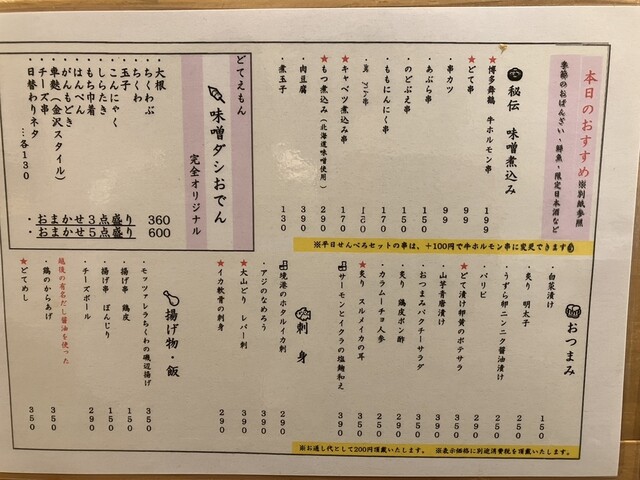 本日のおすすめ ※別紙参照
季節のおばんざい・鮮魚・限定日本酒など
秘伝 味噌煮込み
★博多舞鶴 牛ホルモン串 199
★どて串 99
・串カツ 99
・あぶら串 150
・のどぶえ串 150
・ももにんにく串 170
★キャベツ煮込み串 170
★もつ煮込み（北海道味噌使用） 290
・肉豆腐 390
・煮玉子 130
※平日せんべろセットの串は、＋100円で牛ホルモン串に変更できます
どてえもん
味噌ダシおでん
完全オリジナル
・大根
・ちくわぶ
・ちくわ
・玉子
・こんにゃく
・しらたき
・もち巾着
・はんぺん
・がんもどき
・車麩（金沢スタイル）
・チーズ串
・日替わりネタ
…各130
・おまかせ３点盛り 360
・おまかせ５点盛り 600
おつまみ
・白菜漬け 150
・炙り 明太子 250
・うずら卵ニンニク醤油漬け 250
・パリピ 250
★どて漬け卵黄のポテサラ 350
・山芋青唐漬け 390
・おつまみパクチーサラダ 350
・炙り 鶏皮ポン酢 250
・カラムーチョ人参 250
★炙り スルメイカの耳 350
サーモンとイクラの塩麹和え 390
刺身
境港のホタルイカ刺 290
・アジのなめろう 390
★大山どり レバー刺 390
★イカ軟骨の刺身 290
揚げ物・飯
・モッツァレラちくわの磯辺揚げ 350
・揚げ串 鶏皮 150
・揚げ串 ぼんじり 150
・チーズボール 290
越後の有名だし醤油を使った
・鶏のからあげ 350
★どてめし 350
※お通し代として200円頂戴いたします。 ※表示価格に別途消費税を頂戴いたします。